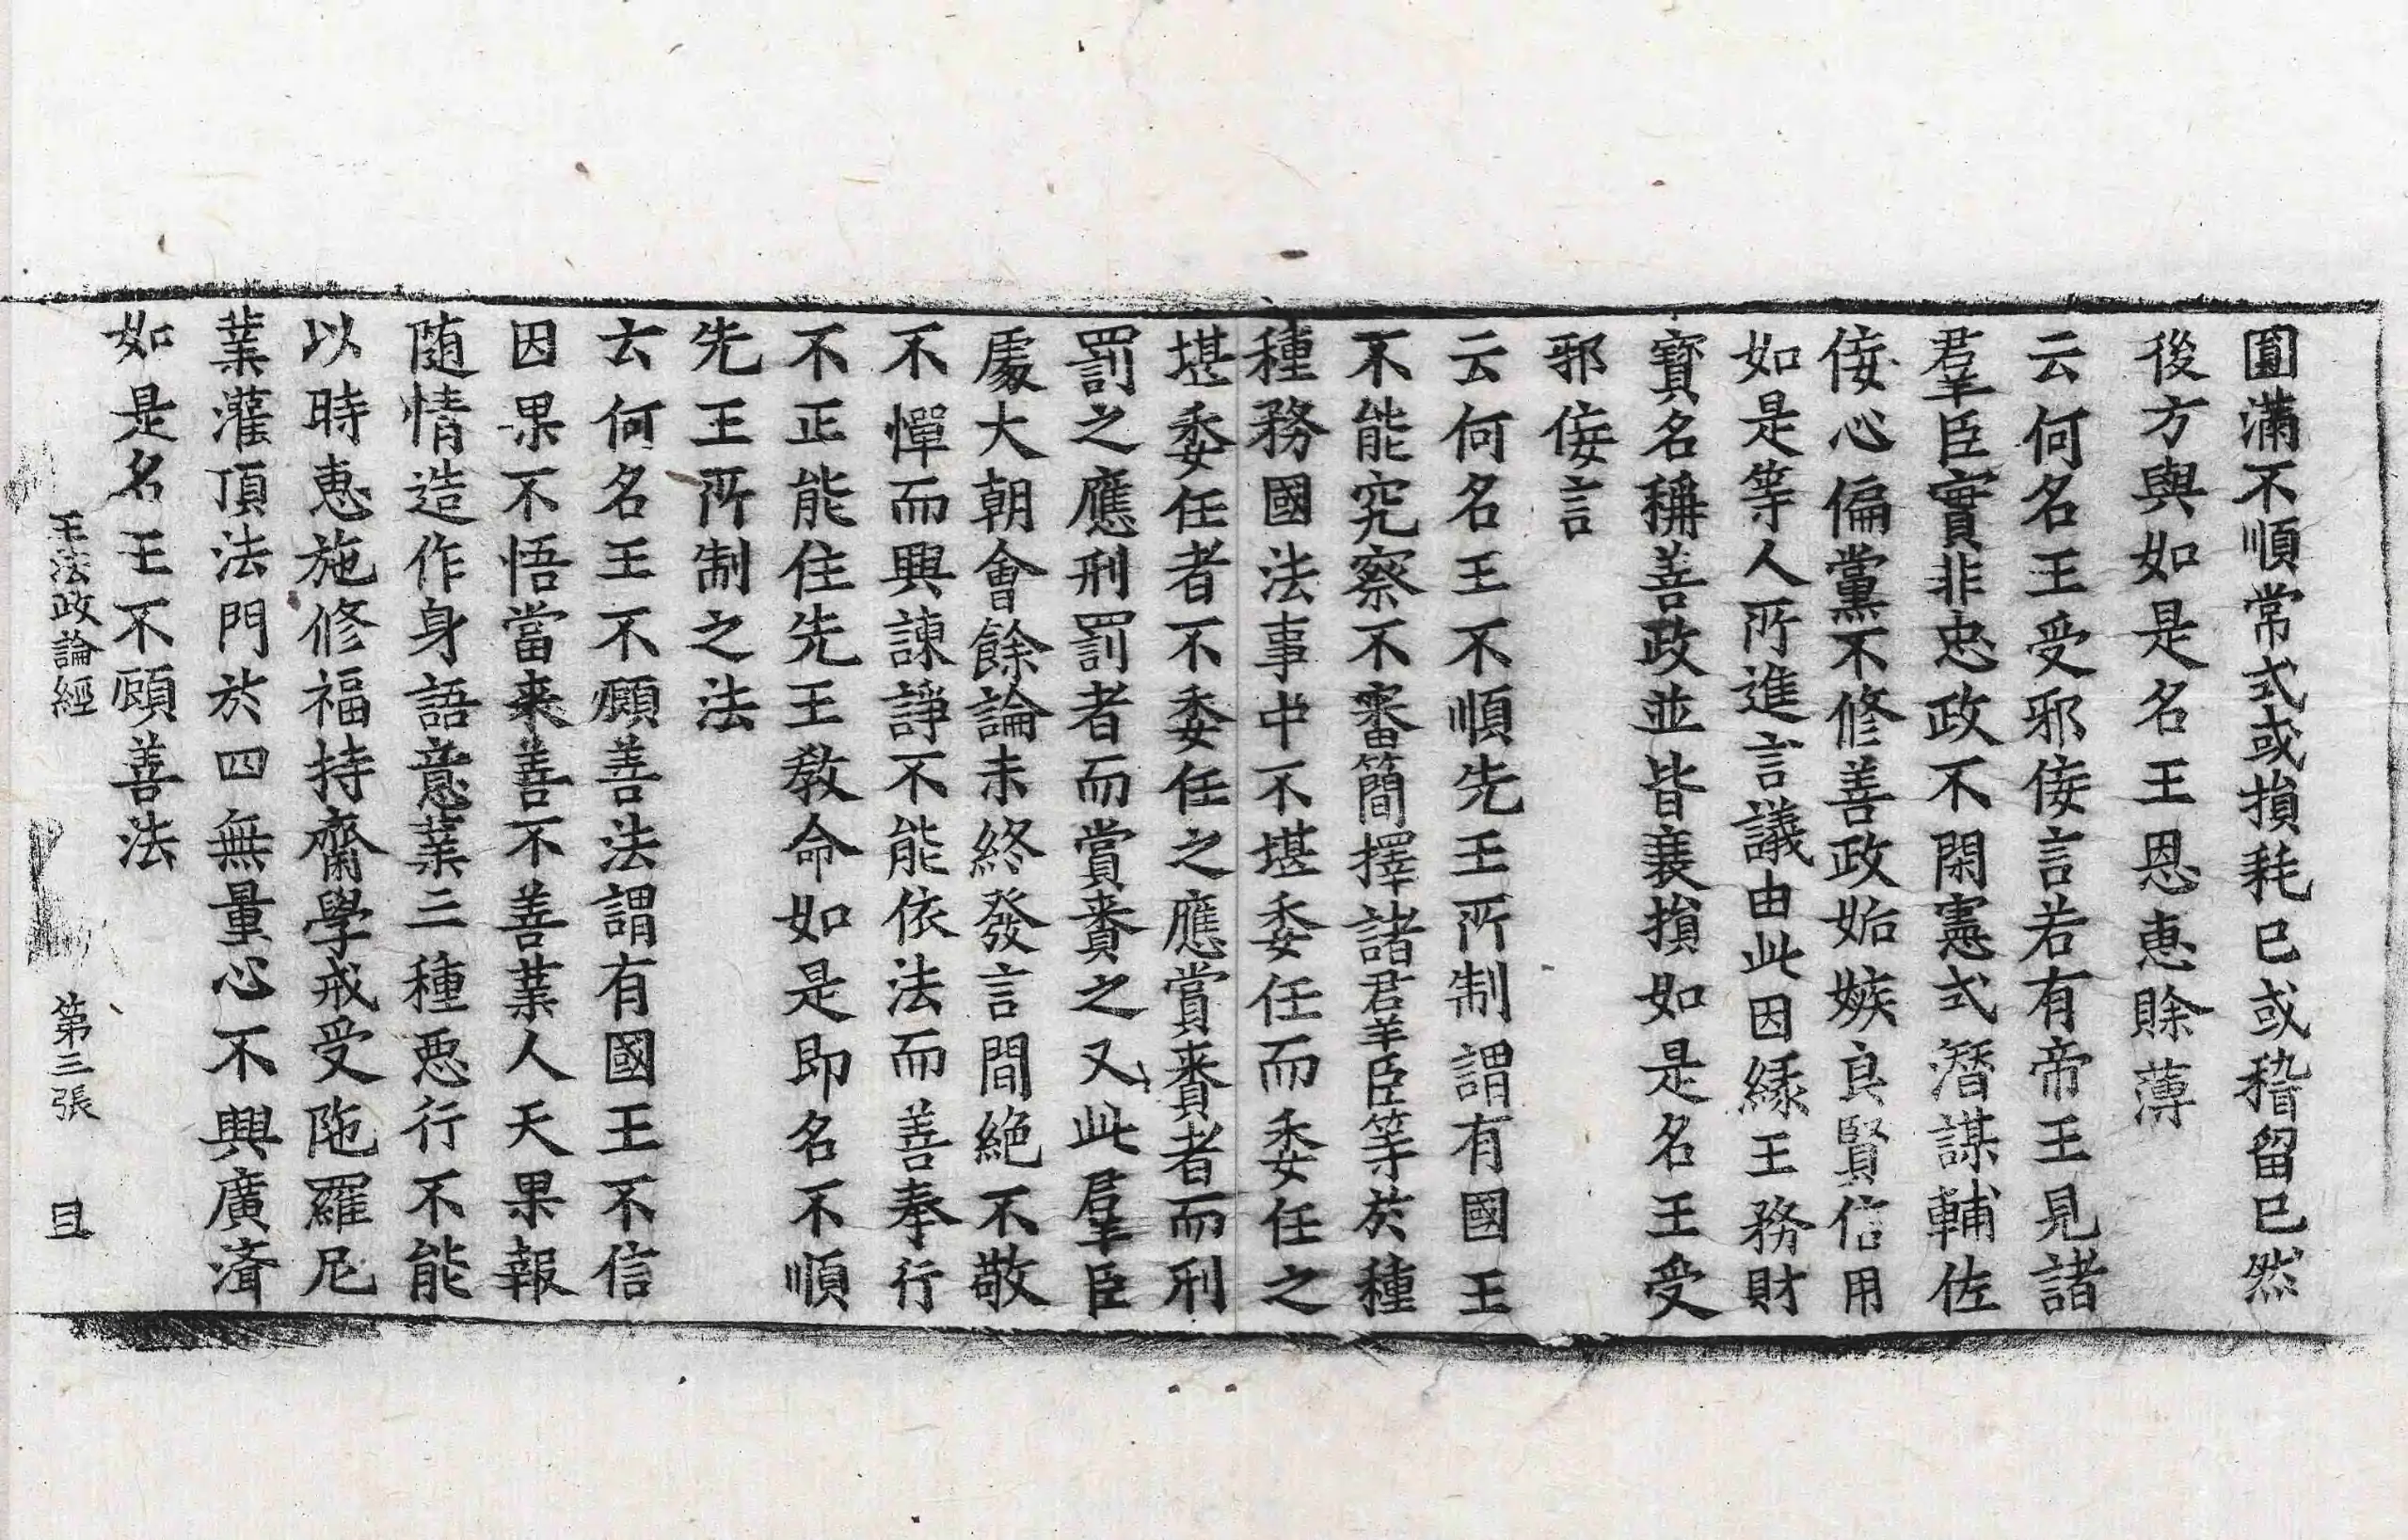 圓滿不順常式或損耗已或稽留已然
後方與如是名王恩惠賒薄
云何名王受邪佞言若有帝王見諸
羣臣實非忠政不閑憲式潛謀輔佐
佞心偏黨不修善政姤嫉良賢信用
如是等人所進言議由此因緣王務財
寶名稱善政並皆衰損如是名王受
邪佞言
云何名王不順先王所制謂有國王
不能究察不審簡擇諸羣臣等於種
種務國法事中不堪委任而委任之
堪委任者不委任之應賞賚者而刑
罰之應刑罰者而賞賚之又此羣臣
處大朝會餘論未終發言間絶不敬
不憚而興諫諍不能依法而善奉行
不正能住先王教命如是即名不順
先王所制之法
云何名王不顧善法謂有國王不信
因果不悟當来善不善業人天果報
随情造作身語意業三種悪行不能
以時惠施修福持齋學戒受陁羅尼
業灌頂法門於四無量心不興廣濟
如是名王不顧善法
王法政論經 第三張